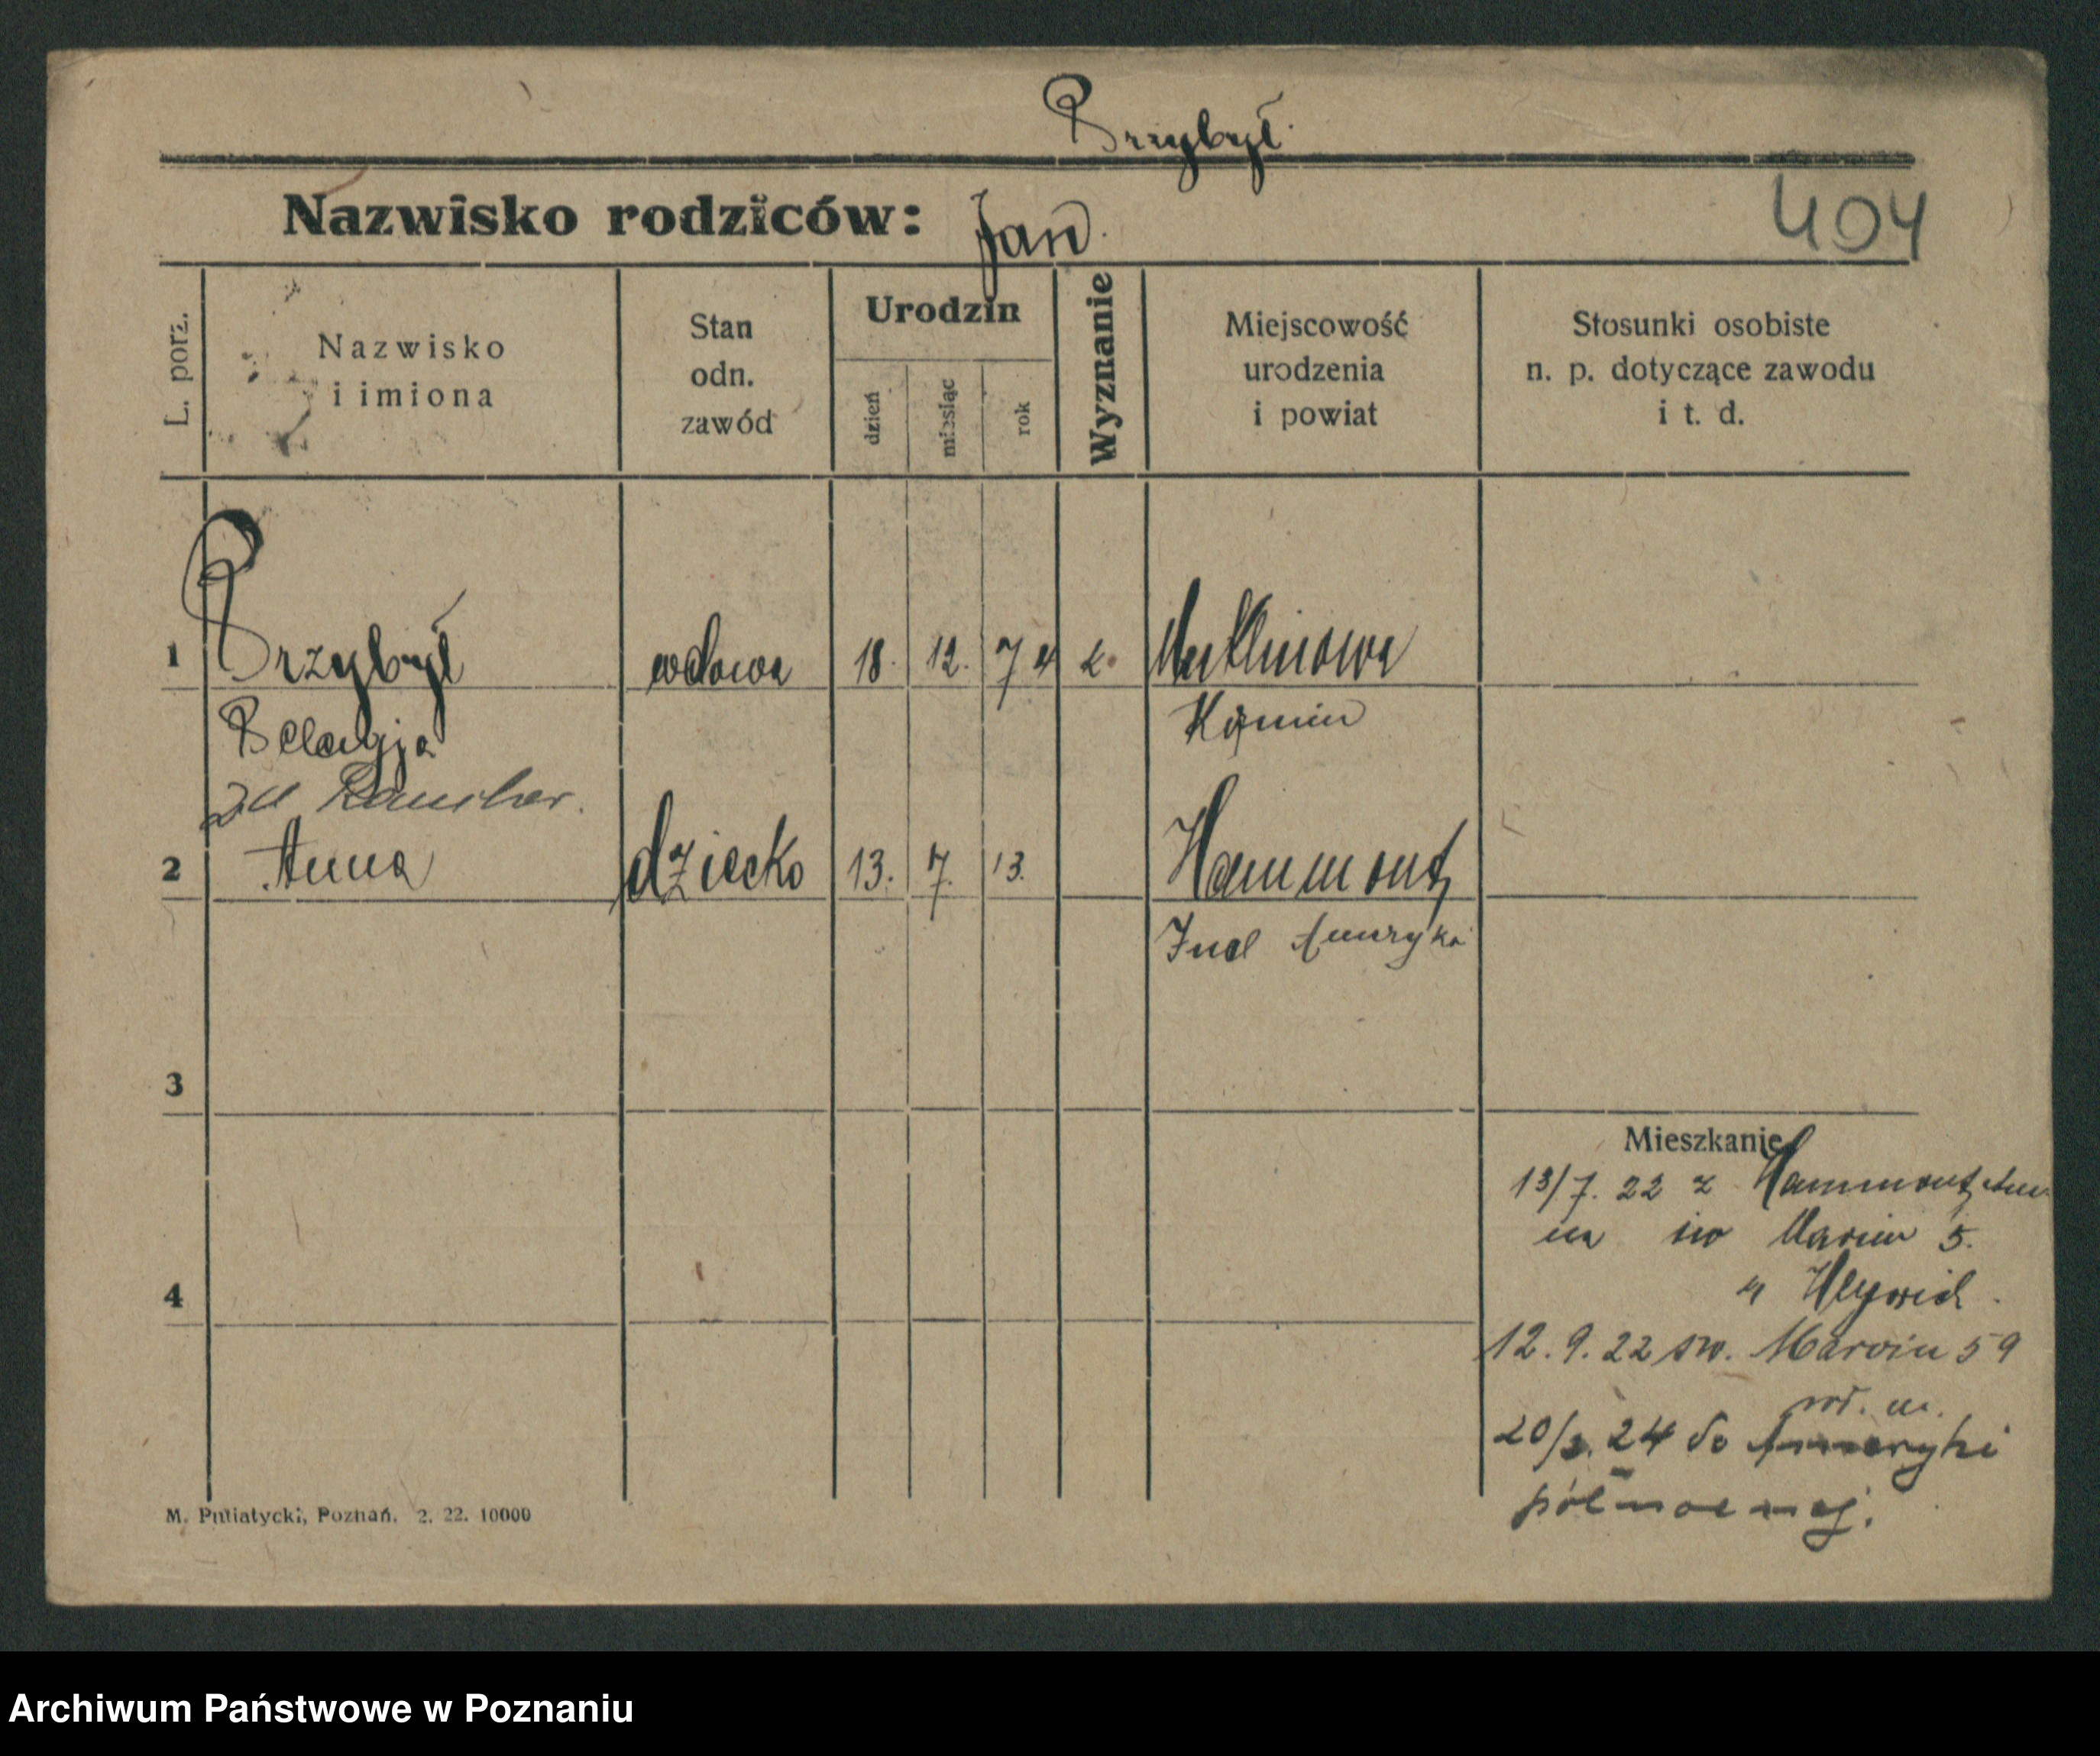 Przybył.
Nazwisko rodziców: Jan.
404
L. porz.
Nazwisko
i imiona
Stan
odn.
zawód
Urodzin
dzień
miesiąc
rok
Wyznanie
Miejscowość
urodzenia
i powiat
Stosunki osobiste
n. p. dotyczące zawodu
i t. d.
1 Przybył wdowa 18. 12. 74 k.
Pelagja Koźmin
2 Anna dziecko 13. 7. 13. Hammont
Ind Ameryka
3
Mieszkanie
13/7. 22 z Hammont
św Marcin 5.
4
12. 9. 22 św. Marcin 59
20/2. 24 do Ameryki
północnej.
M. Putiatycki, Poznań. 2. 22. 10000
Archiwum Państwowe w Poznaniu